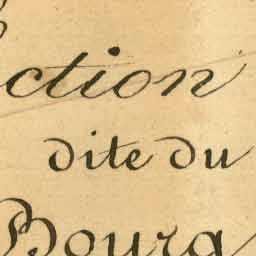 ction
dite du
Bourg